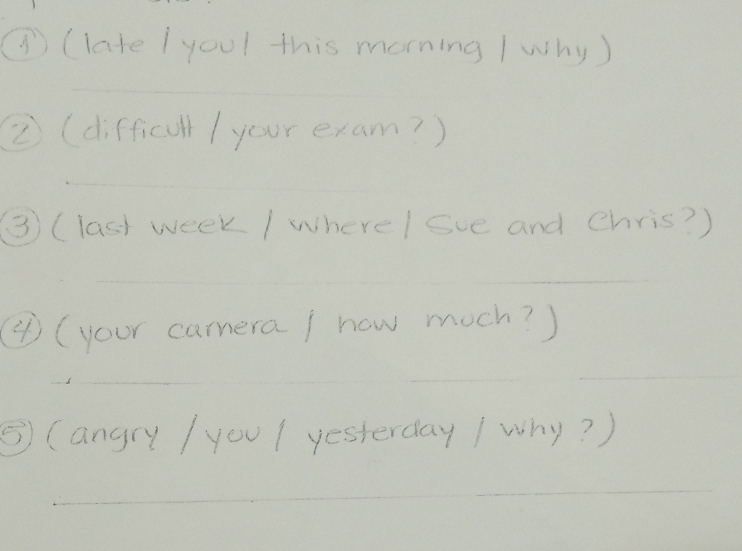 ① (late / you / this morning / why)
② (difficult / your exam?)
③ (last week / where / Sue and Chris?)
④ (your camera / how much?)
⑤ (angry / you / yesterday / why?)